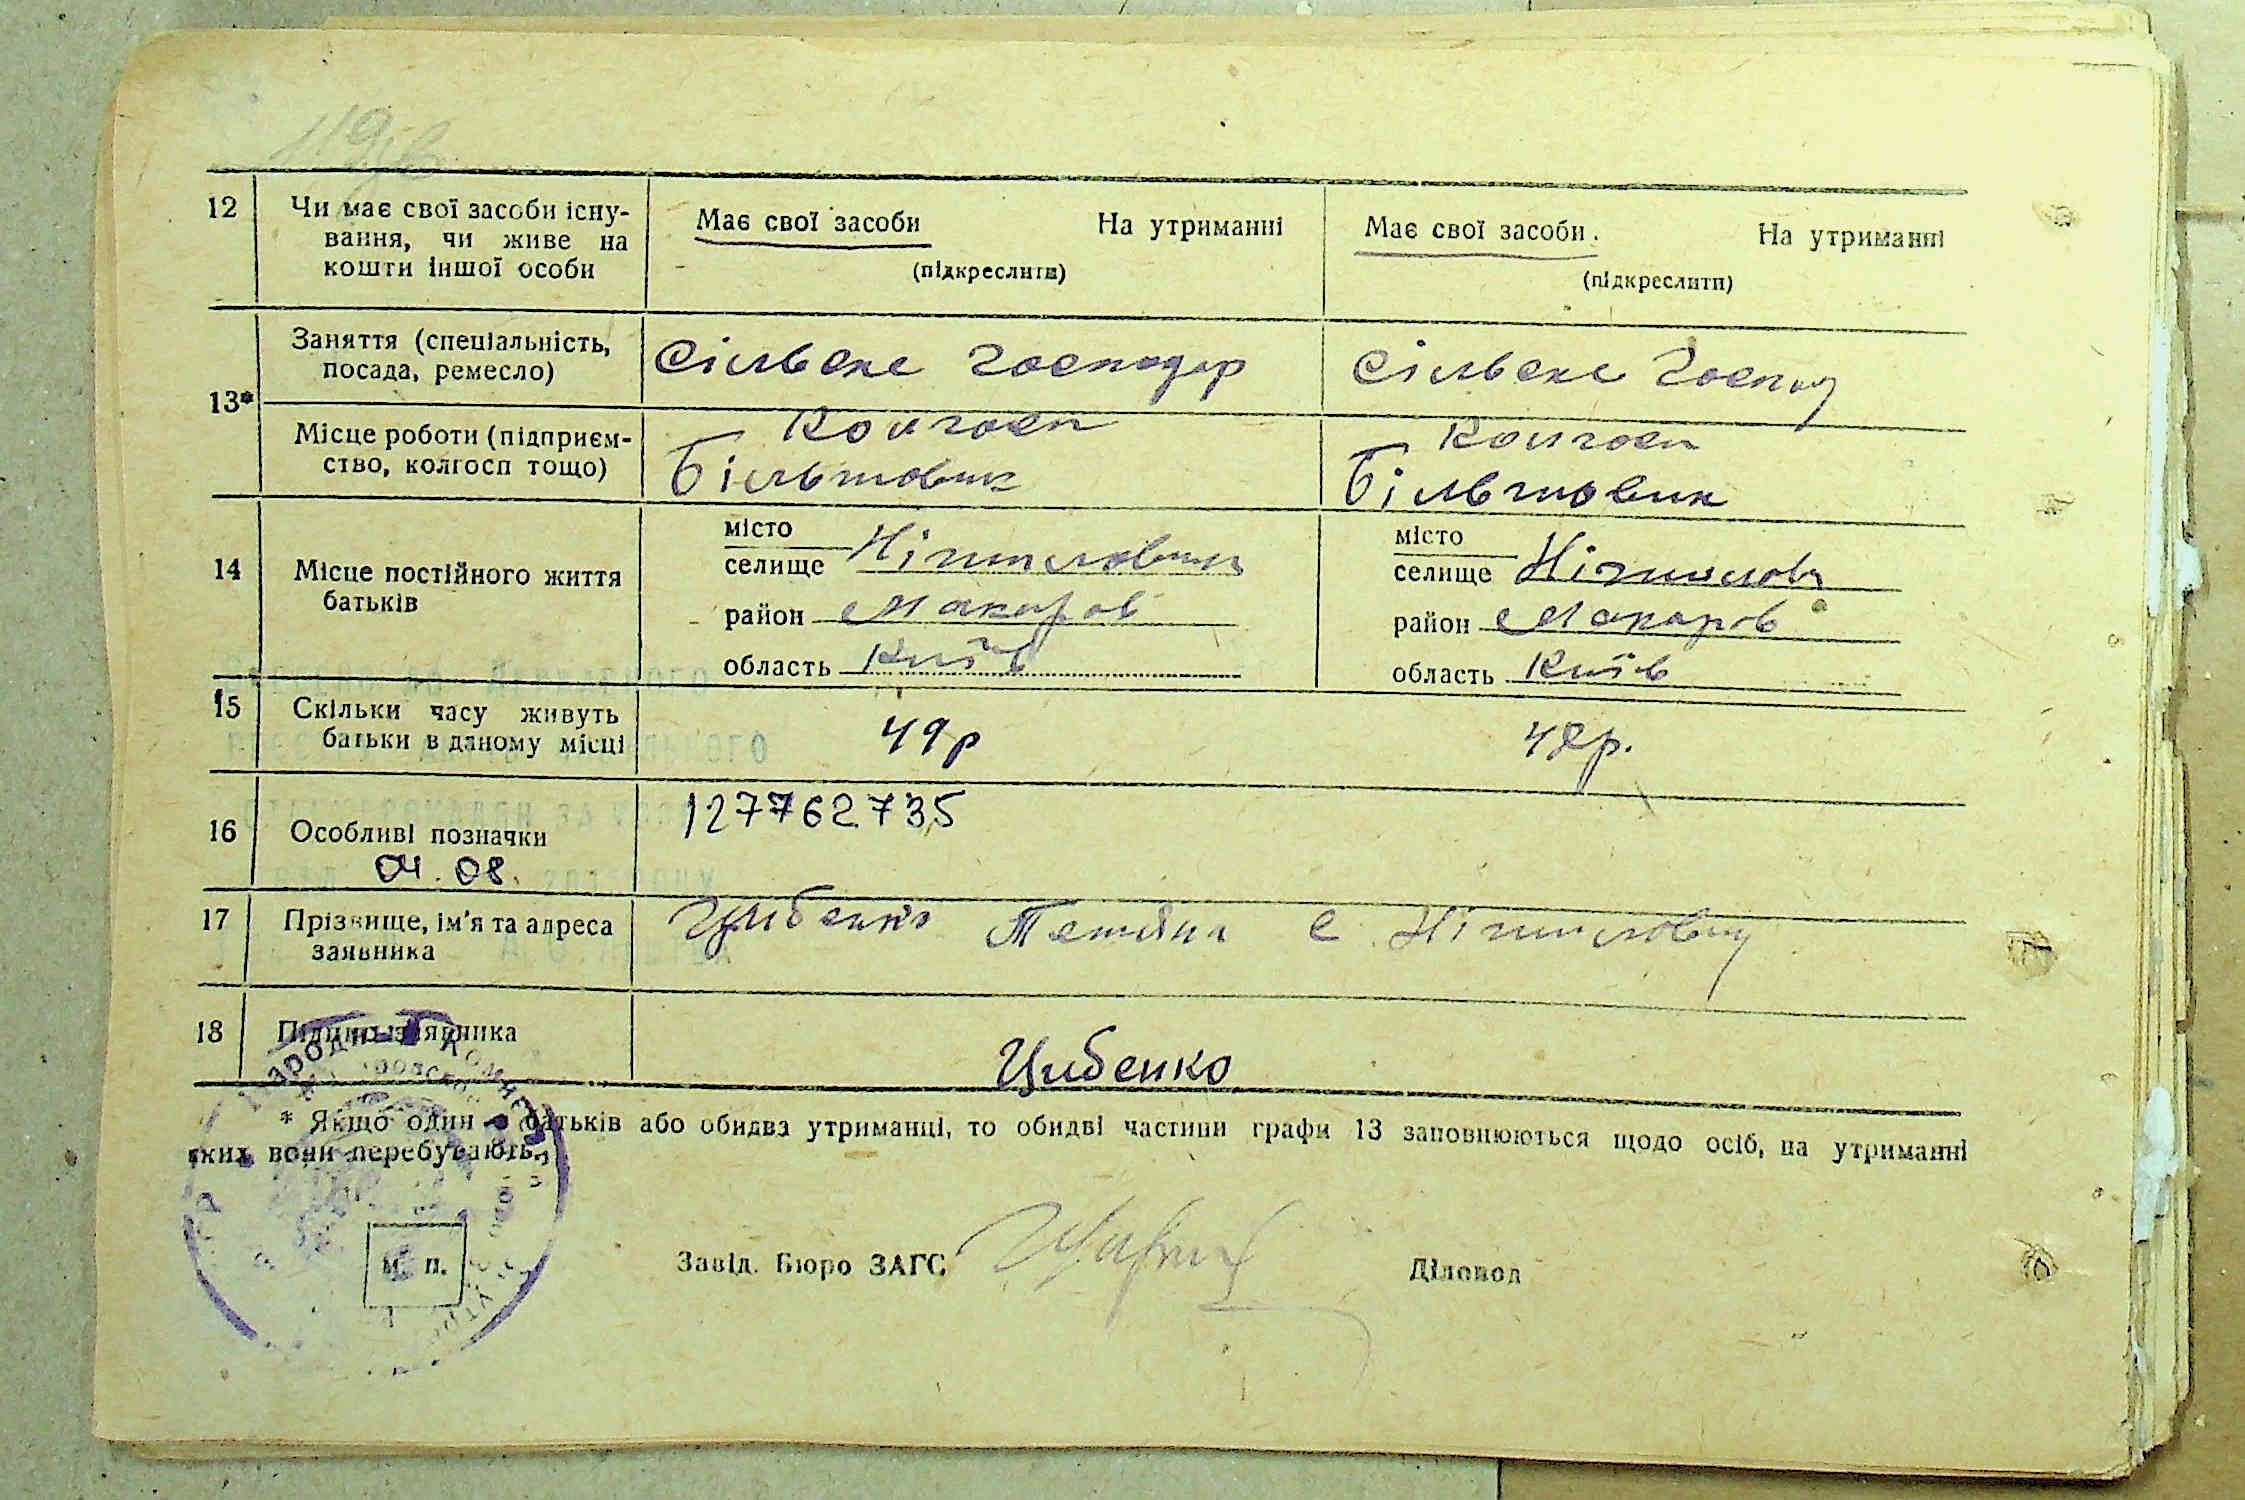 12 Чи має свої засоби існу-
вання, чи живе на
кошти іншої особи
Має свої засоби На утриманні
(підкреслити)
Має свої засоби. На утриманні
(підкреслити)
13*
Заняття (спеціальність,
посада, ремесло)
Сільське господар
Сільське господ
Місце роботи (підприєм-
ство, колгосп тощо)
Колгосп
Більшовик
Колгосп
Більшовик
14 Місце постійного життя
батьків
місто
селище Ніжиловичі
район Макарів
область Київ
місто
селище Ніжилов
район Макарів
область Київ
15 Скільки часу живуть
батьки в даному місці
49р
48р.
16 Особливі позначки
04.08.
127762735
17 Прізвище, ім'я та адреса
заявника
Цибенко Тетяна с Ніжилович
18 Підпис заявника
Цибенко
* Якщо один з батьків або обидва утриманці, то обидві частини графи 13 заповнюються щодо осіб, на утриманні
яких вони перебувають.
м. п.
Завід. Бюро ЗАГС
Діловод